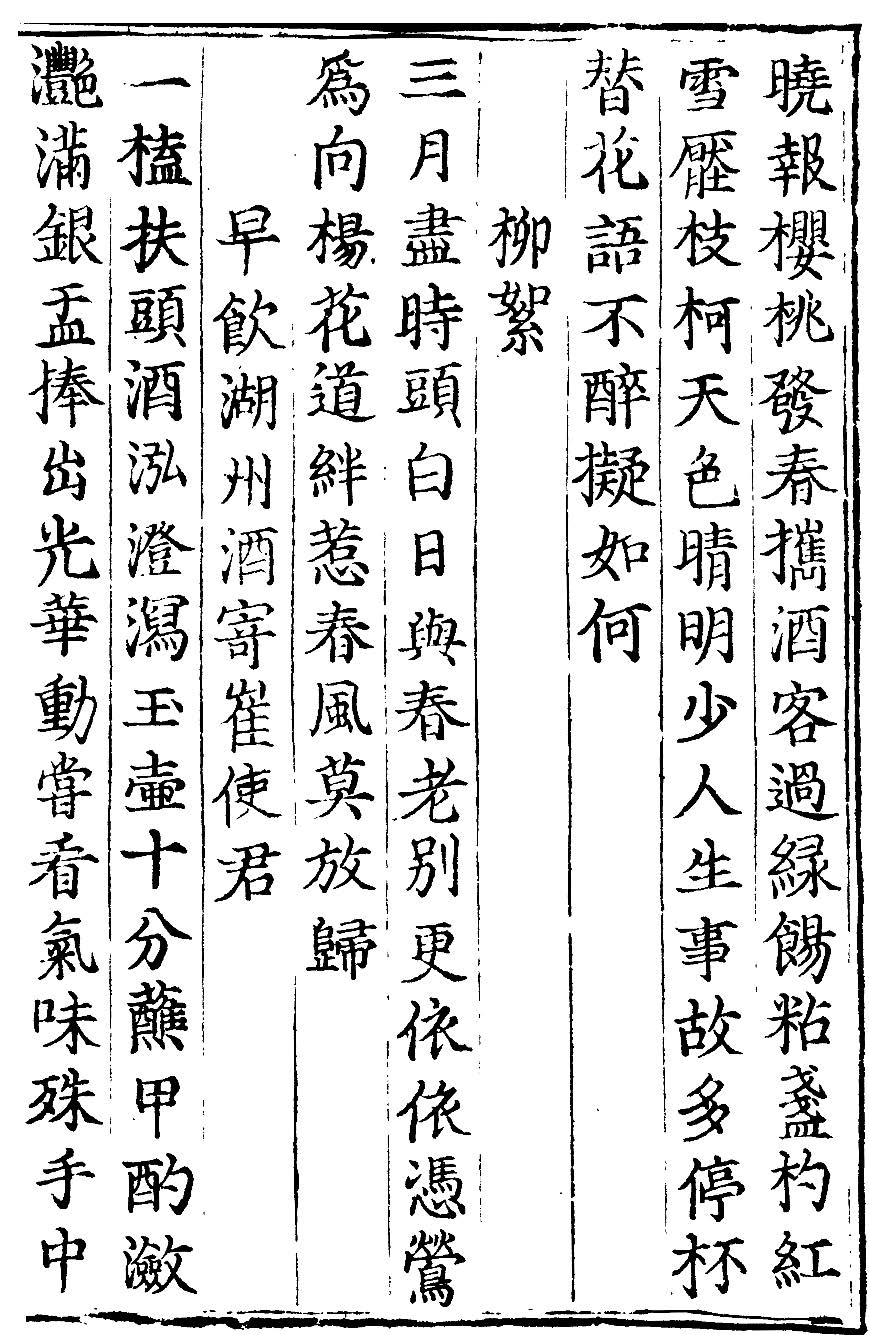 曉報櫻桃發春攜酒客過緑餳粘盞杓紅
雪壓枝柯天色晴明少人生事故多停杯
替花語不醉擬如何
柳絮
三月盡時頭白日與春老别更依依憑鶯
爲向楊花道絆惹春風莫放歸
早飲湖州酒寄崔使君
一榼扶頭酒泓澄瀉玉壷十分蘸甲酌瀲
灧滿銀盂捧出光華動嘗看氣味殊手中